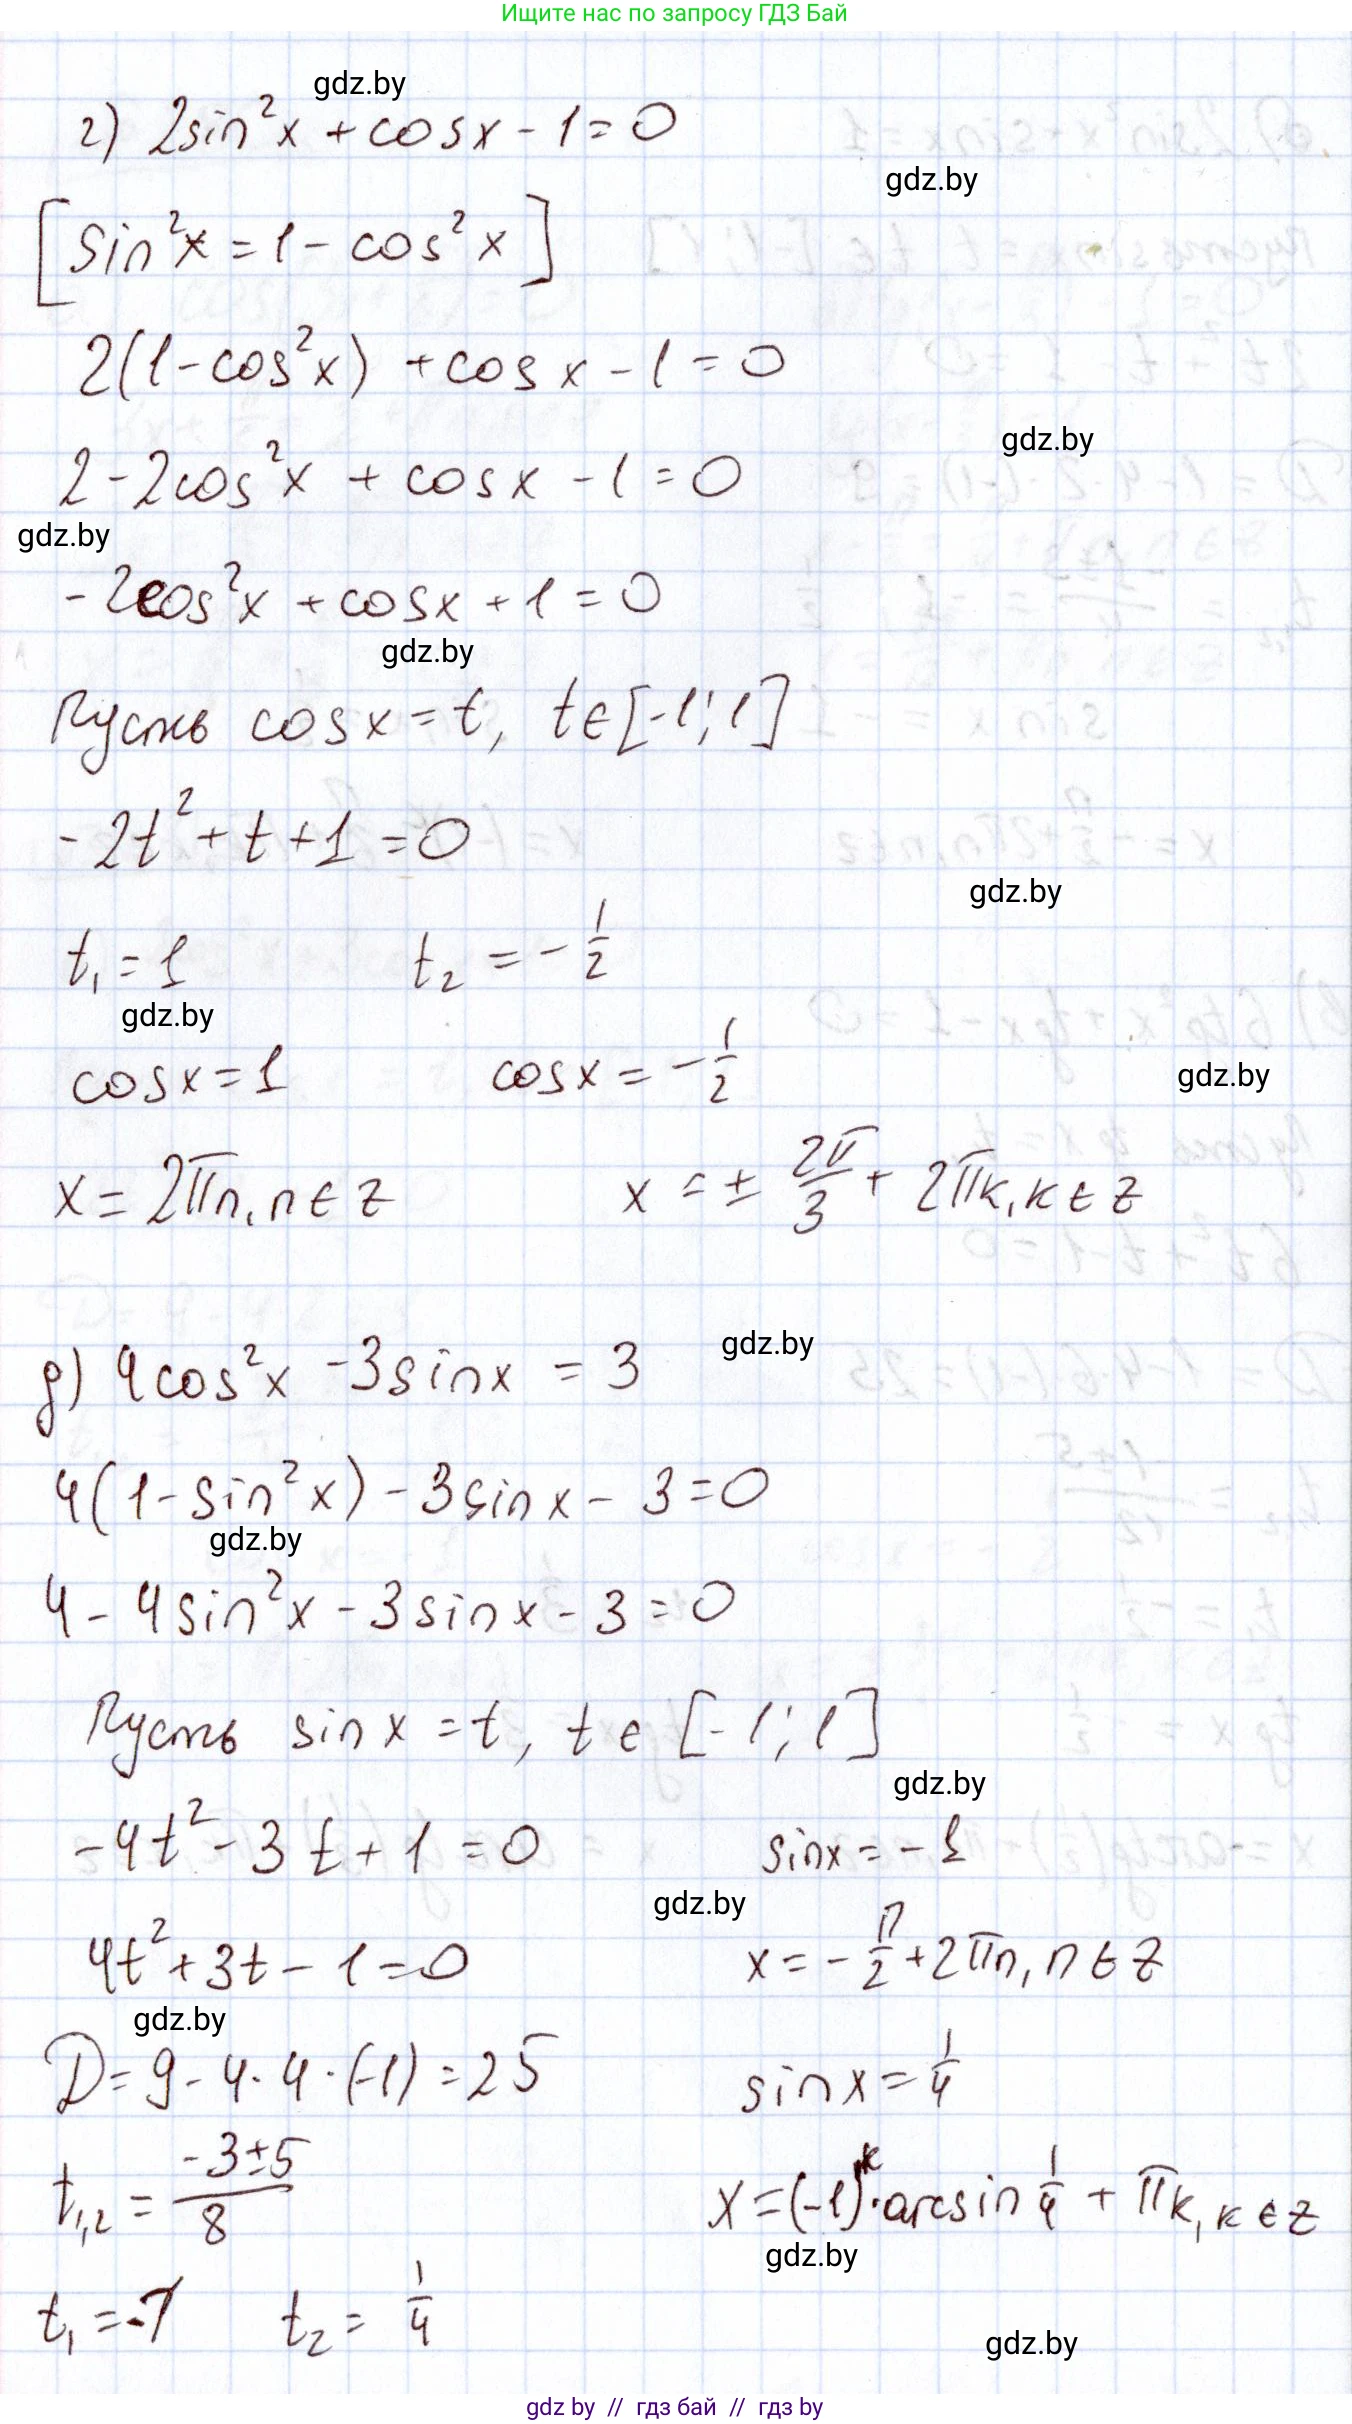 Ищите нас по запросу ГДЗ Бай
gdz.by
г) 2sin²x + cosx - 1 = 0
gdz.by
[sin²x = 1 - cos²x]
2(1 - cos²x) + cosx - 1 = 0
gdz.by
2 - 2cos²x + cosx - 1 = 0
gdz.by
-2cos²x + cosx + 1 = 0
gdz.by
Пусть cosx = t, t ∈ [-1; 1]
-2t² + t + 1 = 0
gdz.by
t₁ = 1 t₂ = -1/2
gdz.by
cosx = 1 cosx = -1/2
gdz.by
x = 2πn, n ∈ Z x = ± 2π/3 + 2πk, k ∈ Z
gdz.by
д) 4cos²x - 3sinx = 3
4(1 - sin²x) - 3sinx - 3 = 0
gdz.by
4 - 4sin²x - 3sinx - 3 = 0
Пусть sinx = t, t ∈ [-1; 1]
gdz.by
-4t² - 3t + 1 = 0 sinx = -1
gdz.by
4t² + 3t - 1 = 0 x = -π/2 + 2πn, n ∈ Z
gdz.by
D = 9 - 4 · 4 · (-1) = 25 sinx = 1/4
t₁,₂ = (-3 ± 5)/8 x = (-1)ᵏ · arcsin 1/4 + πk, k ∈ Z
gdz.by
t₁ = -1 t₂ = 1/4
gdz.by
gdz by // гдз бай // гдз by